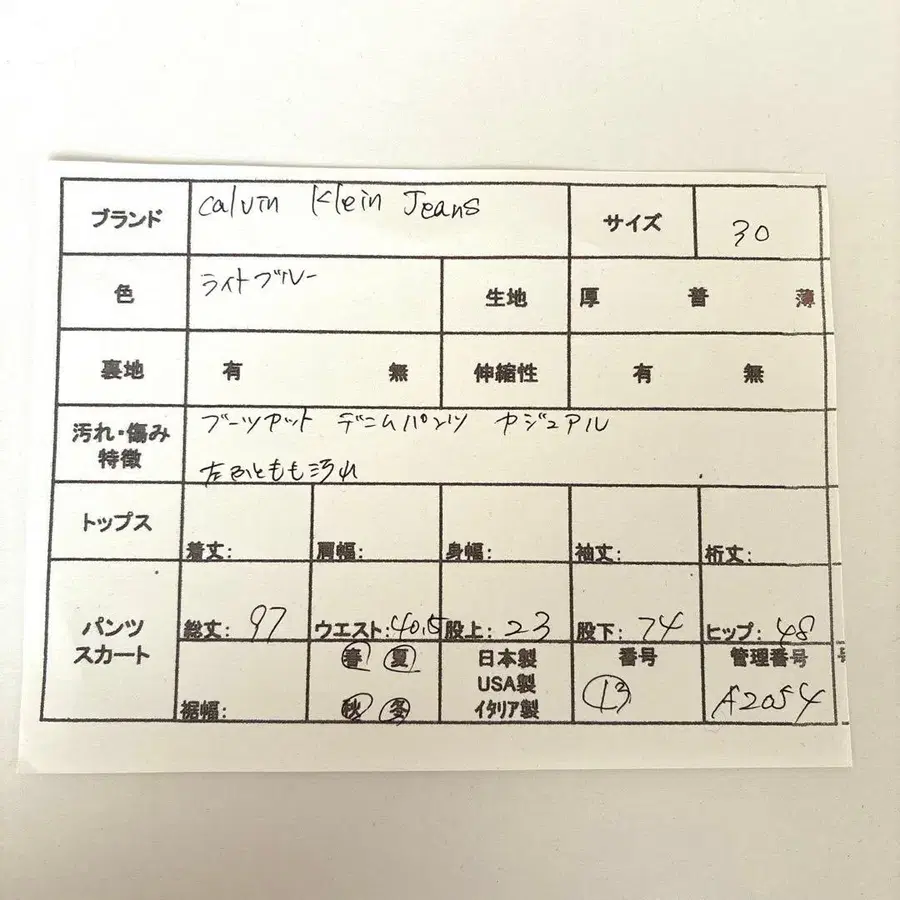 ブランド calvin Klein Jeans サイズ 30
色 ライトブルー 生地 厚 普 薄
裏地 有 無 伸縮性 有 無
汚れ・傷み 特徴 ブーツカット デニムパンツ カジュアル
左ふともも汚れ
トップス 着丈: 肩幅: 身幅: 袖丈: 裄丈:
パンツ スカート 総丈: 97 ウエスト: 40.5 股上: 23 股下: 74 ヒップ: 48
裾幅: 春 夏 秋 冬 日本製 USA製 イタリア製 番号 13 管理番号 A2054